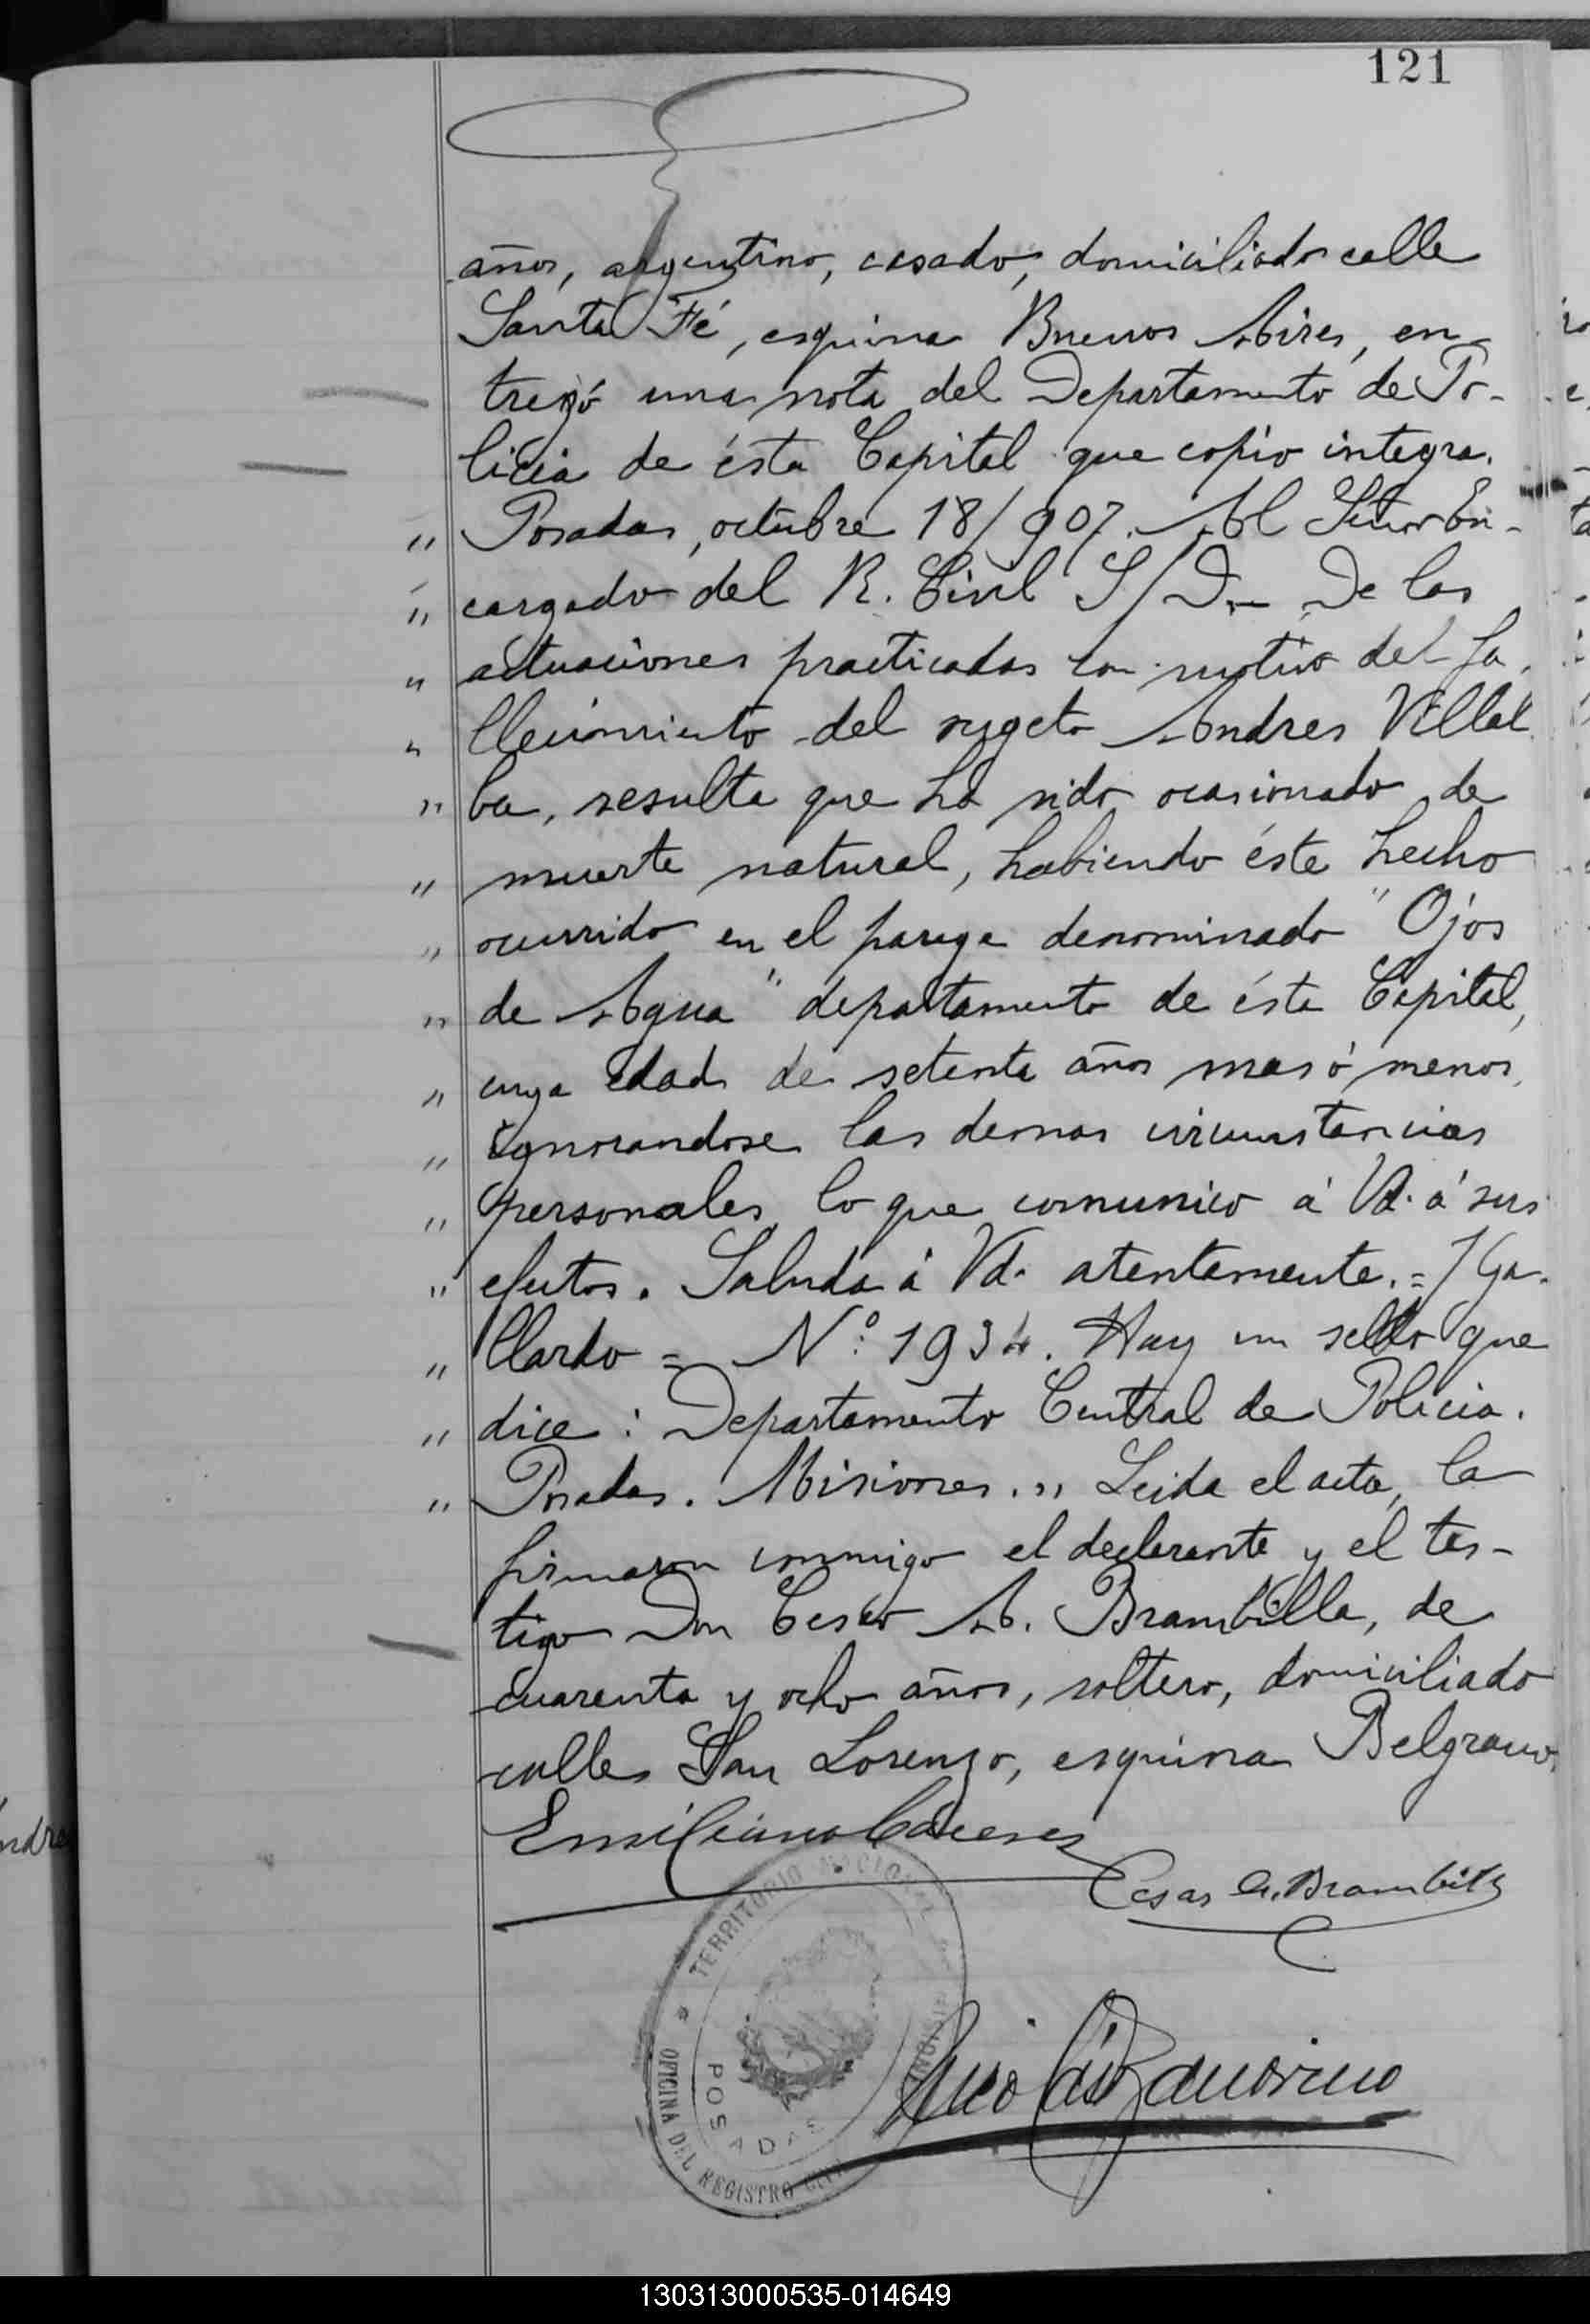 121
años, argentino, casado, domiciliado calle
Santa Fé, esquina Buenos Aires, en-
tregó una nota del Departamento de Po-
licia de ésta Capital que copio integra.
" Posadas, octubre 18/907. Al Señor En-
" cargado del R. Civil S/D.- De las
" actuaciones practicadas con motivo del fa-
" llecimiento del sugeto Andres Villal
" ba, resulta que ha sido ocasionado de
" muerte natural, habiendo éste hecho
" ocurrido en el parage denominado "Ojos
" de Agua" departamento de ésta Capital,
" cuya edad de setenta años mas ó menos,
" ignorandose las demas circunstancias
" personales, lo que comunico á Vd. á sus
" efectos. Saluda á Vd. atentamente.= J Ga-
" llardo = Nº 1934. Hay un sello que
" dice: Departamento Central de Policia.
" Posadas. Misiones." Leida el acta, la
firmaron conmigo el declarante y el tes-
tigo Don Cesar A. Brambilla, de
cuarenta y ocho años, soltero, domiciliado
calle San Lorenzo, esquina Belgrano.
Emiliano Cáceres
Cesar A. Brambilla
TERRITORIO NACIONAL
MISIONES
POSADAS
OFICINA DEL REGISTRO CIVIL
ndre
130313000535-014649